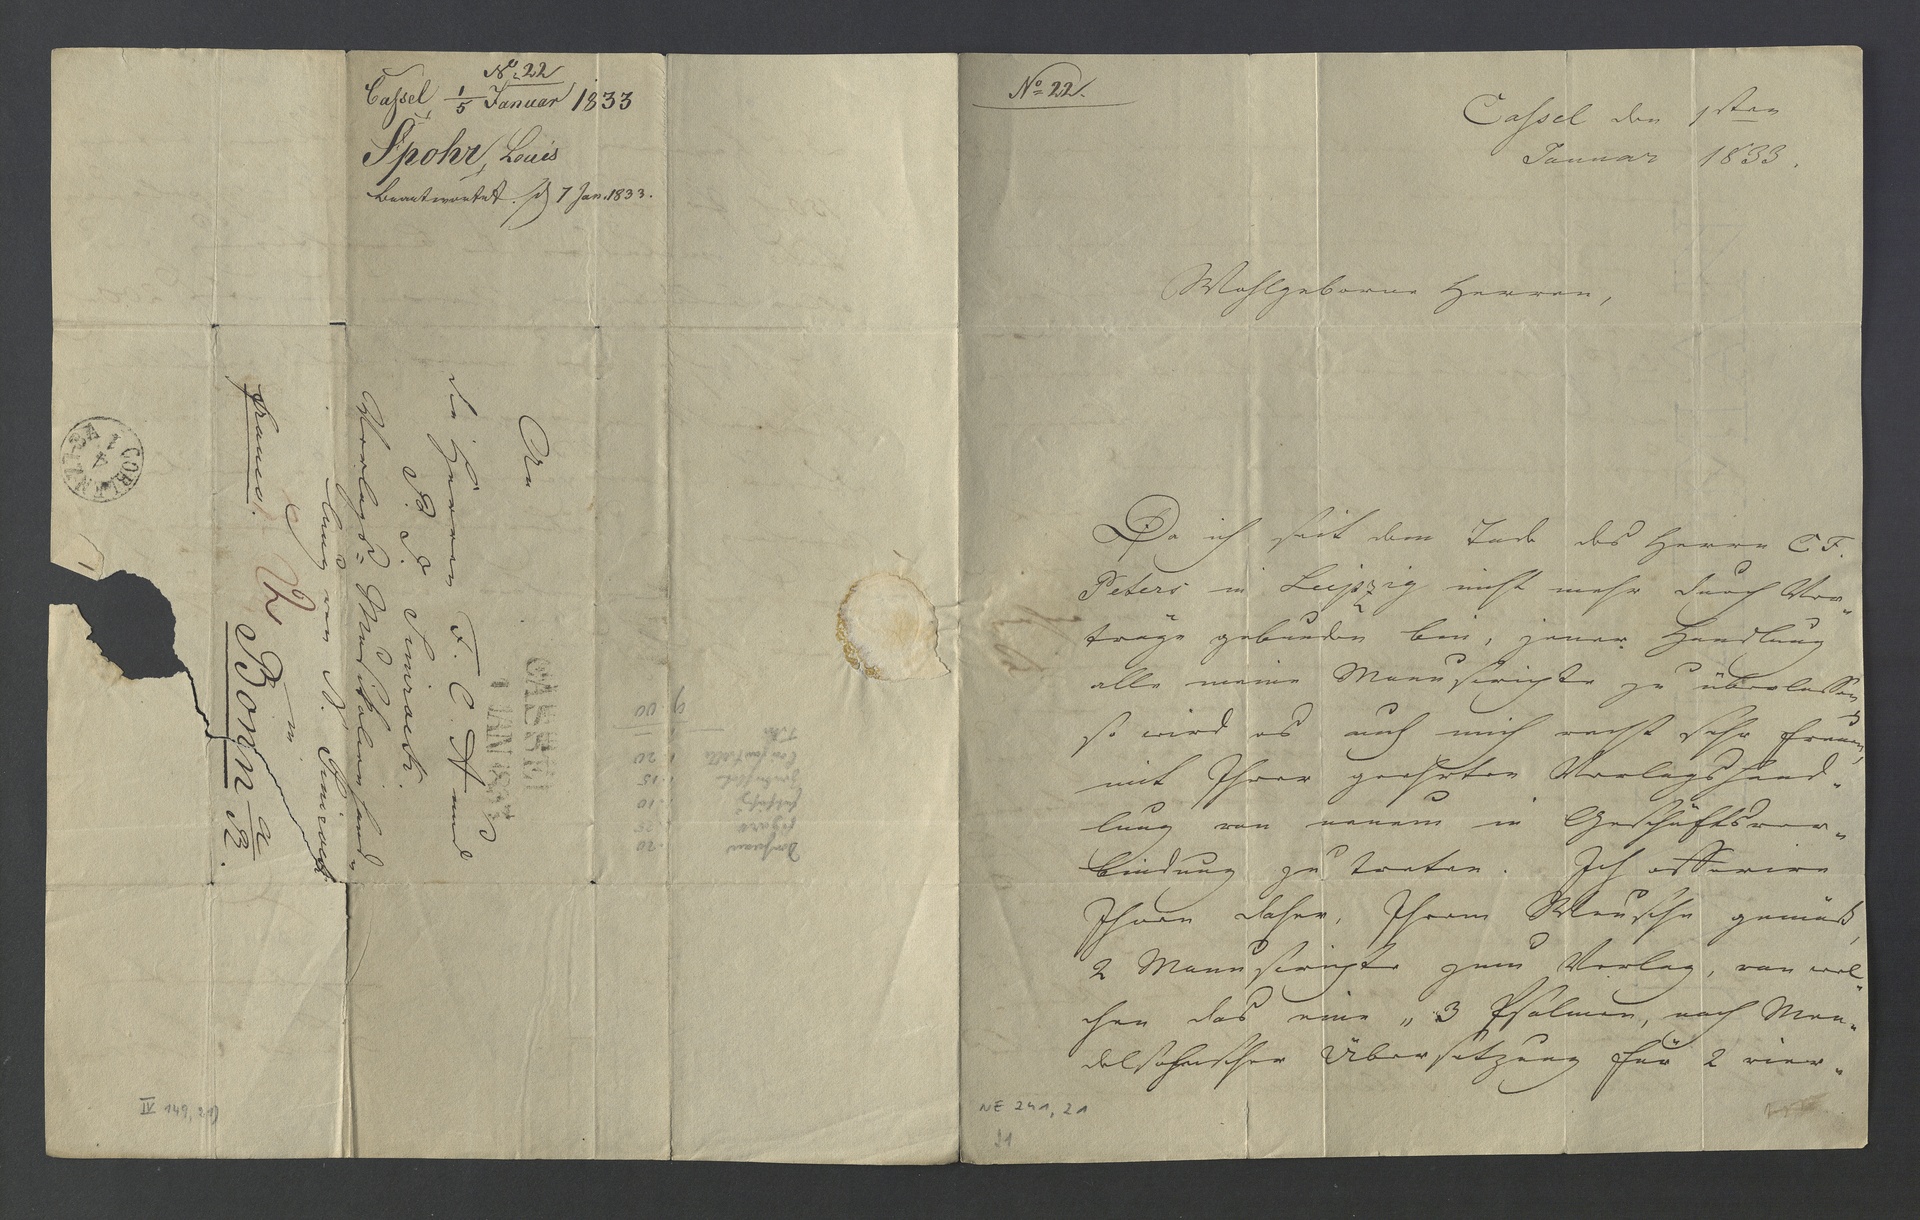 No. 22
Cassel 1/5 Januar 1833
Spohr, Louis
beantwortet. d 7 Jan. 1833.
An
die Herren F. C. A und
P. J. Simrock.
Verlags= Musikalienhand„
lung von N. Simrock
in
Bonn a/R.
franco.
COBLENZ
4
1
CASSEL
1 JAN 1833
Don Juan 20
Figaro 1.25
1.10
1.15
1.20
IV 149, 21)
No. 22.
Cassel den 1sten
Januar 1833.
Wohlgeborne Herren,
Da ich seit dem Tode des Herrn C F.
Peters in Leipzig nicht mehr durch Ver„
träge gebunden bin, jener Handlung
alle meine Manuscripte zu überlassen,
so wird es auch mich recht sehr freuen,
mit Ihrer geehrten Verlagshand„
lung von neuem in Geschäftsver„
bindung zu treten. Ich offerire
Ihnen daher, Ihrem Wunsche gemäß,
2 Manuscripte zum Verlag, von wel„
chen das eine „3 Psalmen, nach Men„
delsohnscher Übersetzung für 2 vier„
NE 241, 21
21